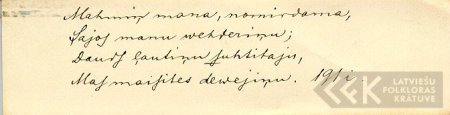 Mahmiņ mana, nomirdama,
Sajoſ manu wehderiņu;
Daudſ ļautiņu ſuhtitaju,
Maſ maiſites dewejiņu. 191i
LATVIEŠU
FOLKLORAS
KRĀTUVE